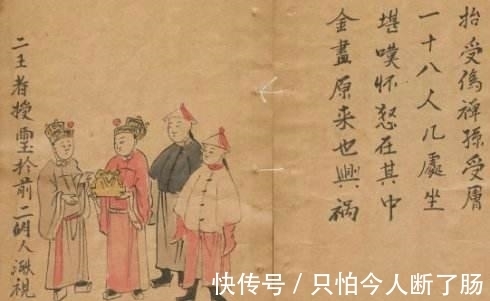 抬受僞禪孫受
一十八人几處坐
堪噗怀怒在其中
金畫原来也興禍
二王者授璽扵前二明人視
快传号 / 只怕今人断了肠